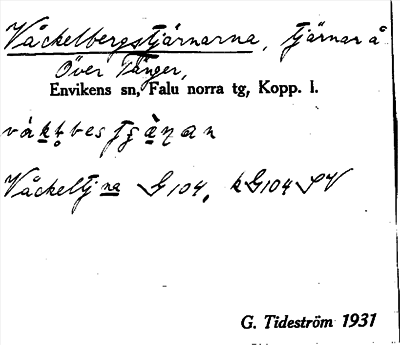 Våckelbergstjärnarna, tjärnar å
Över Tänger,
Envikens sn, Falu norra tg, Kopp. l.
Våckeltjna G104, kG104 SV
G. Tideström 1931